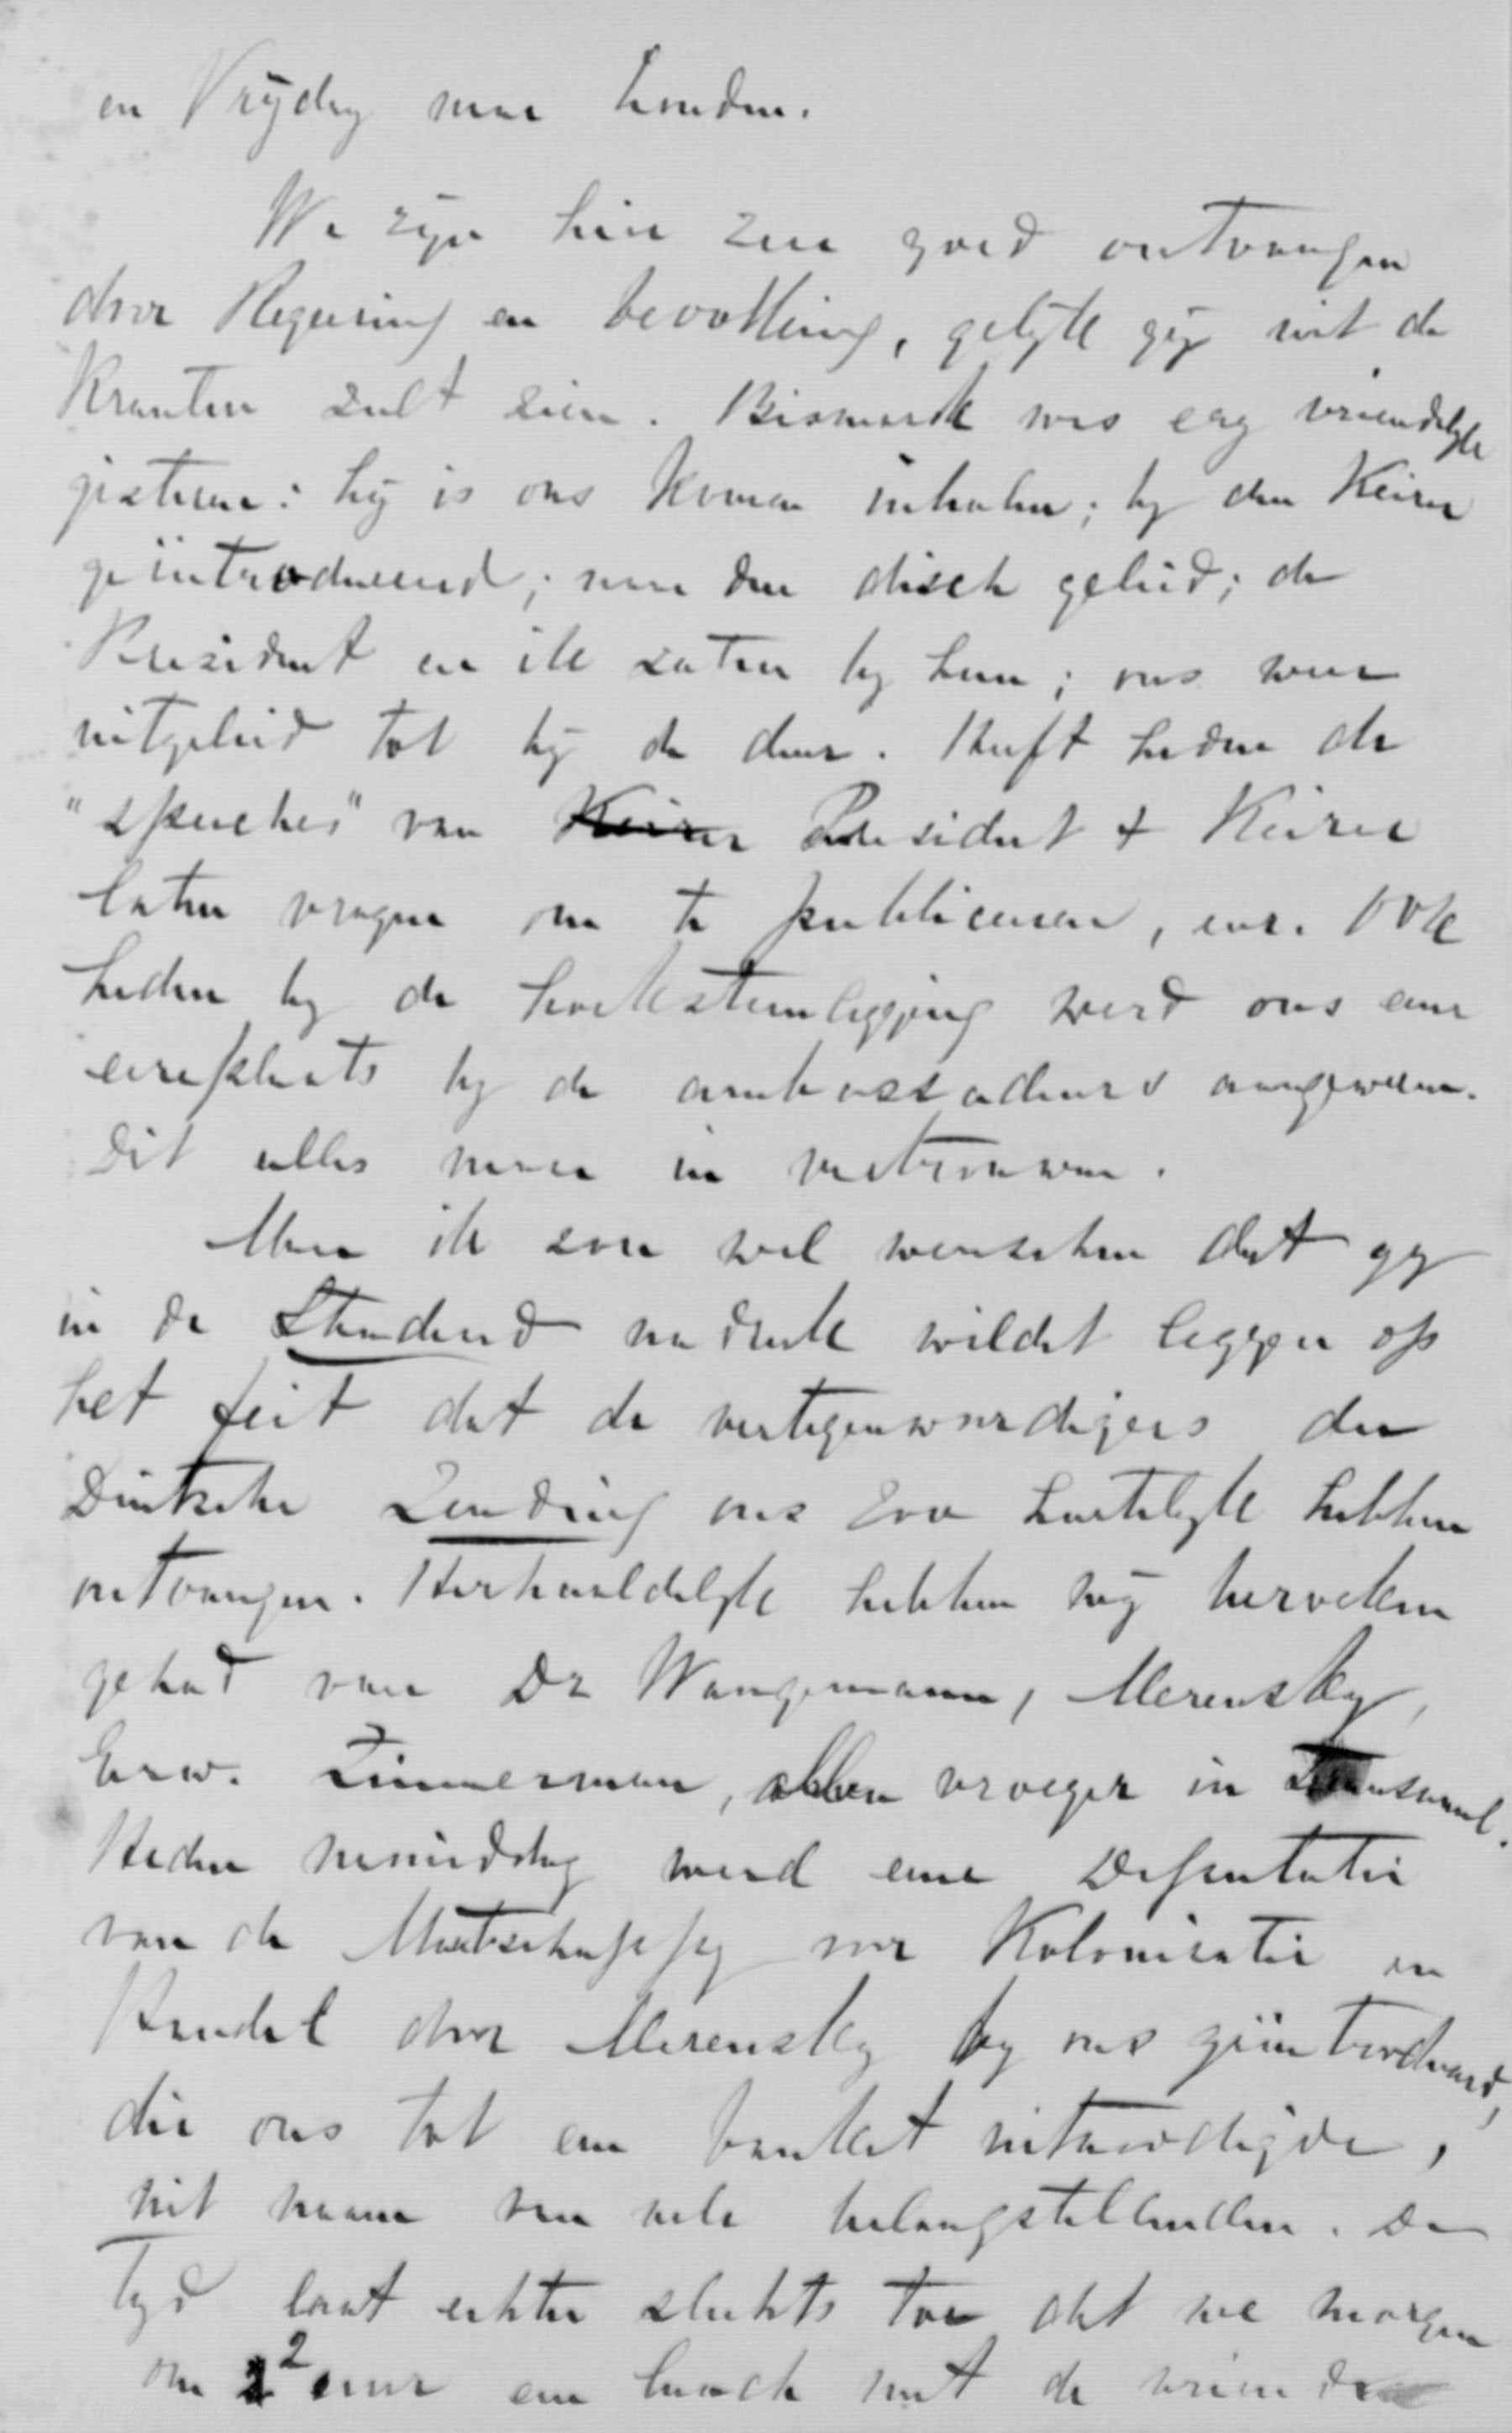 en Vrijdag naar Londen.
We zijn hier zeer goed ontvangen
door Regeering en bevolking, gelijk gij uit de
Kranten zult zien. Bismarck was erg vriendelijk
gisteren: hij is ons komen inhalen; by den Keizer
geïntroduceerd; naar den disch geleid; de
President en ik zaten by hem; ons weer
uitgeleid tot bij de deur. Heeft heden de
"speeches" van Keizer President & Keizer
laten vragen om te publiceeren, enz. Ook
heden by de hoeksteenlegging werd ons eene
eereplaats by de ambassadeurs aangewezen.
Dit alles maar in vertrouwen.
Maar ik zou wel wenschen dat gy
in de Standard nadruk wildet leggen op
het feit dat de vertegenwoordigers der
Duitsche Zending ons zoo hartelijk hebben
ontvangen. Herhaaldelijk hebben wij bezoeken
gehad van Dr Wangemann, Merensky,
Eerw. Zimmerman, allen vroeger in Transvaal.
Heden namiddag werd eene Deputatie
van de Maatschappij voor Kolonisatie en
Handel door Merensky by ons geïntroduceerd,
die ons tot een banket uitnoodigde,
uit naam van vele belangstellenden. De
Tyd laat echter slechts toe dat we morgen
om 2 uur een lunch met de vrienden